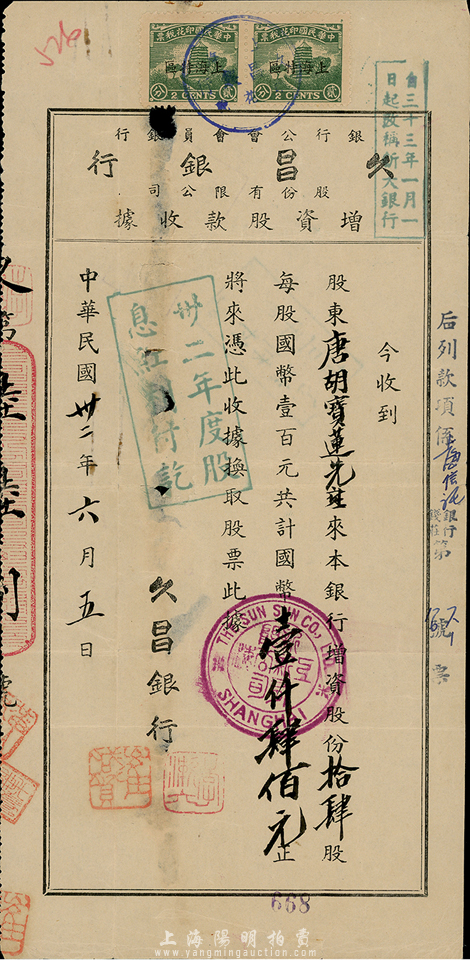 528
中華民國印花稅票
上海特區
貳分 2 CENTS 貳分
中華民國印花稅票
上海特區
貳分 2 CENTS 貳分
自三十三年一月一
日起改稱新大銀行
銀行公會會員銀行
久昌銀行
股份有限公司
增資股款收據
今收到
股東唐胡寶蓮先生來本銀行增資股份拾肆股
每股國幣壹百元共計國幣壹仟肆佰元正
將來憑此收據換取股票此據
久昌銀行
中華民國卅二年六月五日
卅二年度股
息紅利付訖
THE SUN SUN CO.,
SHANGHAI
后列款項係上海信託銀行
錢莊第
號
668
上海陽明拍賣
www.yangmingauction.com